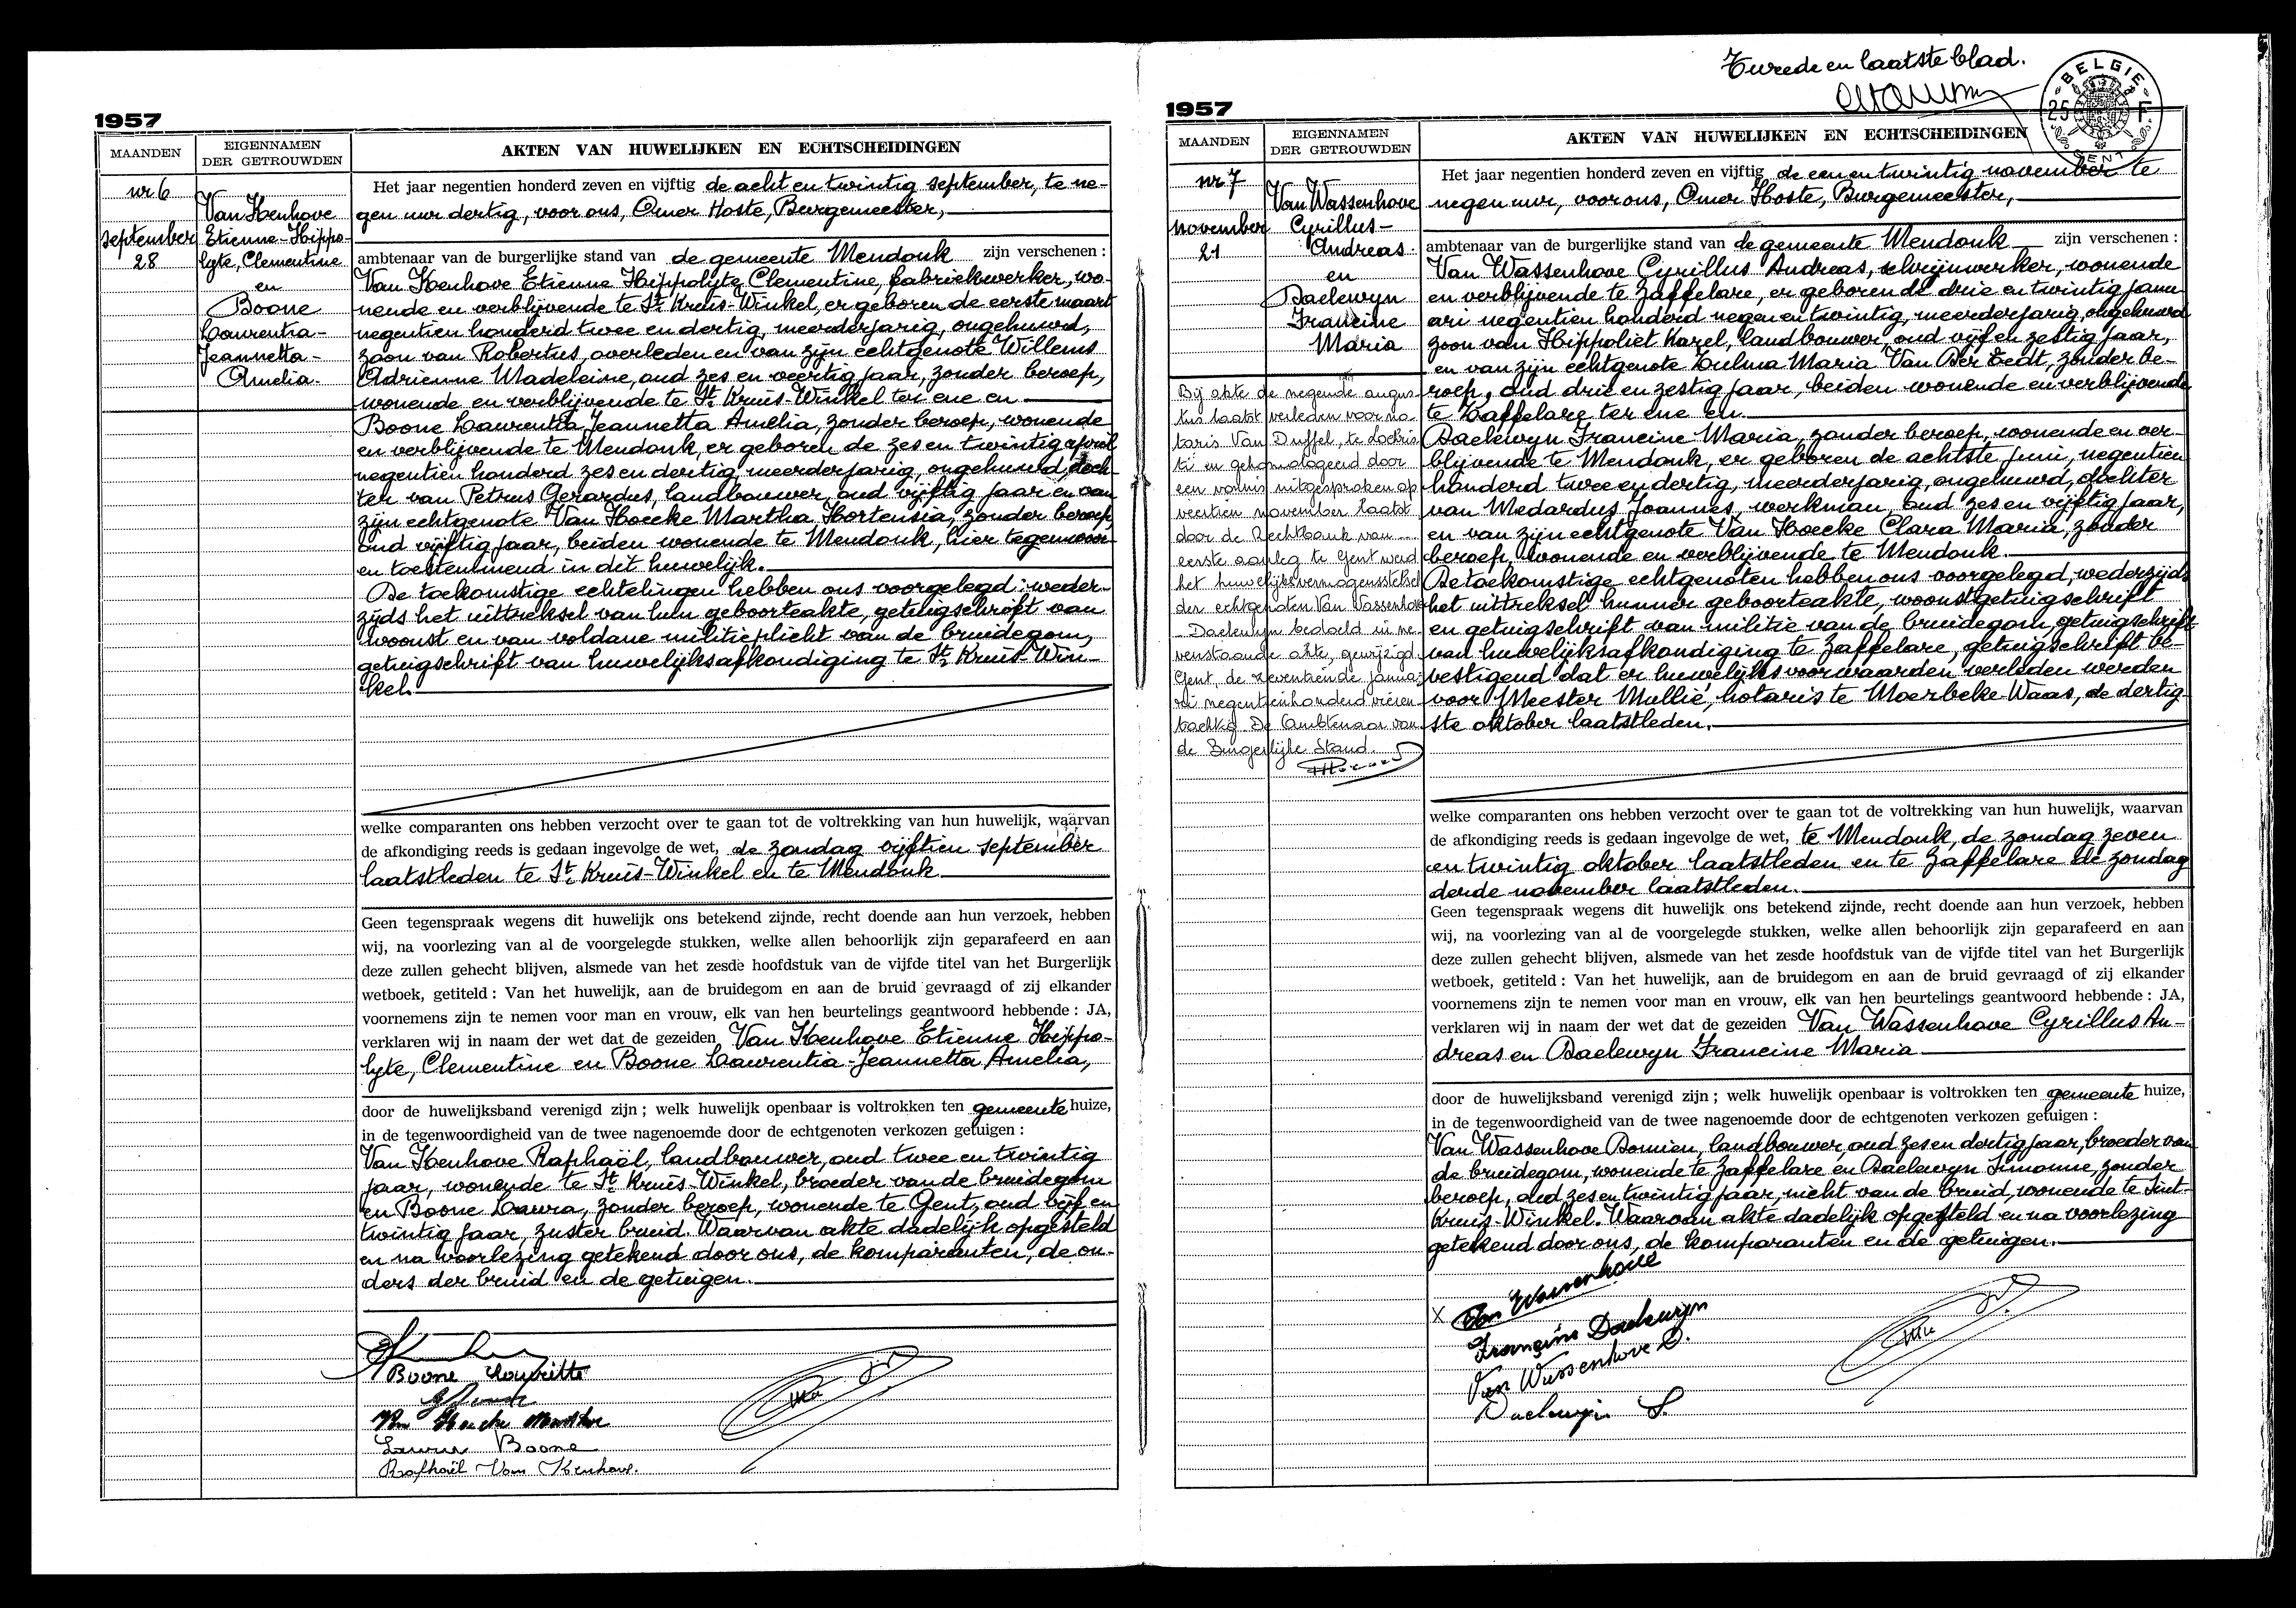 1957
MAANDEN
EIGENNAMEN
DER GETROUWDEN
AKTEN VAN HUWELIJKEN EN ECHTSCHEIDINGEN
nr 6
september
28
Van Kenhove
Etienne-Hippo-
lyte, Clementine
en
Boone
Laurentia-
Jeannetta-
Amelia.
Het jaar negentien honderd zeven en vijftig de acht en twintig september, te ne-
gen uur dertig, voor ons, Omer Hoste, Burgemeester,
ambtenaar van de burgerlijke stand van de gemeente Mendonk zijn verschenen :
Van Kenhove Etienne Hippolyte Clementine, fabriekwerker, wo-
nende en verblijvende te St Kruis-Winkel, er geboren de eerste maart
negentien honderd twee en dertig, meerderjarig, ongehuwd,
zoon van Robertus, overleden en van zijn echtgenote Willems
Adrienne Madeleine, oud zes en veertig jaar, zonder beroep,
wonende en verblijvende te St Kruis-Winkel ter ene en
Boone Laurentia Jeannetta Amelia, zonder beroep, wonende
en verblijvende te Mendonk, er geboren de zes en twintig april
negentien honderd zes en dertig, meerderjarig, ongehuwd, doch-
ter van Petrus Gerardus, landbouwer, oud vijftig jaar en van
zijn echtgenote Van Hoecke Martha Hortensia, zonder beroep,
oud vijftig jaar, beiden wonende te Mendonk, hier tegenwoor-
en toestemmend in dit huwelijk.
De toekomstige echtelingen hebben ons voorgelegd : weder-
zijds het uittreksel van hun geboorteakte, getuigschrift van
woonst en van voldane militieplicht van de bruidegom,
getuigschrift van huwelijksafkondiging te St Kruis-Win-
kel.
welke comparanten ons hebben verzocht over te gaan tot de voltrekking van hun huwelijk, waarvan
de afkondiging reeds is gedaan ingevolge de wet, de zondag vijftien september
laatstleden te St Kruis-Winkel en te Mendonk
Geen tegenspraak wegens dit huwelijk ons betekend zijnde, recht doende aan hun verzoek, hebben
wij, na voorlezing van al de voorgelegde stukken, welke allen behoorlijk zijn geparafeerd en aan
deze zullen gehecht blijven, alsmede van het zesde hoofdstuk van de vijfde titel van het Burgerlijk
wetboek, getiteld : Van het huwelijk, aan de bruidegom en aan de bruid gevraagd of zij elkander
voornemens zijn te nemen voor man en vrouw, elk van hen beurtelings geantwoord hebbende : JA,
verklaren wij in naam der wet dat de gezeiden Van Kenhove Etienne Hippo-
lyte, Clementine en Boone Laurentia-Jeannetta Amelia,
door de huwelijksband verenigd zijn ; welk huwelijk openbaar is voltrokken ten gemeente huize,
in de tegenwoordigheid van de twee nagenoemde door de echtgenoten verkozen getuigen :
Van Kenhove Raphaël, landbouwer, oud twee en twintig
jaar, wonende te St Kruis-Winkel, broeder van de bruidegom
en Boone Laura, zonder beroep, wonende te Gent, oud vijf en
twintig jaar, zuster bruid. Waarvan akte dadelijk opgesteld
en na voorlezing getekend door ons, de komparanten, de ou-
ders der bruid en de getuigen.
Boone Lauritte
Van Hoecke Martha
Laura Boone
Rafhaël Van Kenhove.
Twede en laatste blad.
BELGIE
25 F
GENT
1957
MAANDEN
EIGENNAMEN
DER GETROUWDEN
AKTEN VAN HUWELIJKEN EN ECHTSCHEIDINGEN
nr 7
november
21
Van Wassenhove
Cyrillus-
Andreas.
en
Daelewyn
Francine
Maria
Bij akte de negende augus-
tus laatst verleden voor no-
taris Van Duffel, te Lochris-
ti en gehomologeerd door
een vonnis uitgesproken op
veertien november laatst
door de Rechtbank van
eerste aanleg te Gent werd
het huwelijksvermogensstelsel
der echtgenoten Van Wassenhove
- Daelewyn bedoeld in ne-
venstaande akte, gewijzigd.
Gent, de zeventiende janua-
ri negentienhonderd vieren-
tachtig. De Ambtenaar van
de Burgerlijke Stand.
Het jaar negentien honderd zeven en vijftig de een en twintig november te
negen uur, voor ons, Omer Hoste, Burgemeester,
ambtenaar van de burgerlijke stand van de gemeente Mendonk zijn verschenen :
Van Wassenhove Cyrillus Andreas, schrijnwerker, wonende
en verblijvende te Zaffelare, er geboren de drie en twintig janu-
ari negentien honderd negen en twintig, meerderjarig, ongehuwd
zoon van Hippoliet Karel, landbouwer, oud vijf en zestig jaar,
en van zijn echtgenote Zulma Maria Van Der Eedt, zonder be-
roep, oud drie en zestig jaar, beiden wonende en verblijvende
te Zaffelare ter ene en.
Daelewyn Francine Maria, zonder beroep, wonende en ver-
blijvende te Mendonk, er geboren de achtste juni, negentien
honderd twee en dertig, meerderjarig, ongehuwd, dochter
van Medardus Joannes, werkman, oud zes en vijftig jaar,
en van zijn echtgenote Van Hoecke Clara Maria, zonder
beroep, wonende en verblijvende te Mendonk.
De toekomstige echtgenoten hebben ons voorgelegd, wederzijds
het uittreksel hunner geboorteakte, woonstgetuigschrift
en getuigschrift van militie van de bruidegom, getuigschrift
van huwelijksafkondiging te Zaffelare, getuigschrift be-
vestigend dat er huwelijksvoorwaarden verleden werden
voor Meester Mullie, notaris te Moerbeke-Waas, de dertig-
ste oktober laatstleden.
welke comparanten ons hebben verzocht over te gaan tot de voltrekking van hun huwelijk, waarvan
de afkondiging reeds is gedaan ingevolge de wet, te Mendonk, de zondag zeven
en twintig oktober laatstleden en te Zaffelare de zondag
derde november laatstleden.
Geen tegenspraak wegens dit huwelijk ons betekend zijnde, recht doende aan hun verzoek, hebben
wij, na voorlezing van al de voorgelegde stukken, welke allen behoorlijk zijn geparafeerd en aan
deze zullen gehecht blijven, alsmede van het zesde hoofdstuk van de vijfde titel van het Burgerlijk
wetboek, getiteld : Van het huwelijk, aan de bruidegom en aan de bruid gevraagd of zij elkander
voornemens zijn te nemen voor man en vrouw, elk van hen beurtelings geantwoord hebbende : JA,
verklaren wij in naam der wet dat de gezeiden Van Wassenhove Cyrillus An-
dreas en Daelewyn Francine Maria
door de huwelijksband verenigd zijn ; welk huwelijk openbaar is voltrokken ten gemeente huize,
in de tegenwoordigheid van de twee nagenoemde door de echtgenoten verkozen getuigen :
Van Wassenhove Domien, landbouwer, oud zes en dertig jaar, broeder van
de bruidegom, wonende te Zaffelare en Daelewyn Simonne, zonder
beroep, oud zes en twintig jaar, nicht van de bruid, wonende te Sint-
Kruis-Winkel. Waarvan akte dadelijk opgesteld en na voorlezing
getekend door ons, de komparanten en de getuigen.
X Van Wassenhove
Françine Daelewyn
Van Wassenhove D.
Daelewyn S.